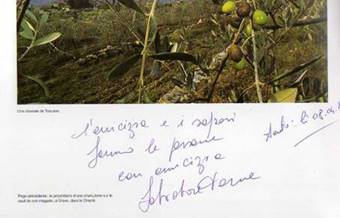 Une oliveraie de Toscane.
l'amicizia e i sapori
fanno le persone
con amicizia
Salvatore
li 08.04.
Page précédente : le propriétaire d'une charcuterie sur le
seuil de son magasin, à Greve, dans le Chianti.